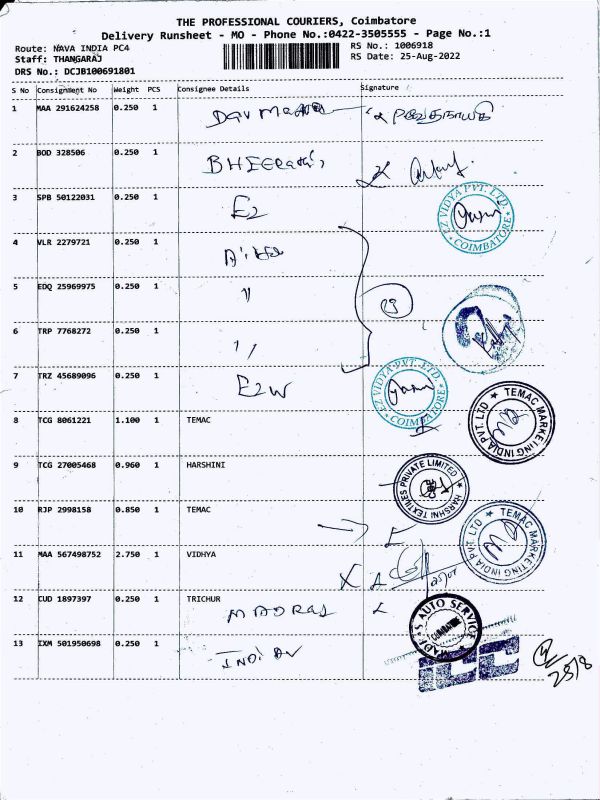 THE PROFESSIONAL COURIERS, Coimbatore
Delivery Runsheet - MO - Phone No.:0422-3505555 - Page No.:1
Route: NAVA INDIA PC4 RS No.: 1006918
Staff: THANGARAJ RS Date: 25-Aug-2022
DRS No.: DCJB100691801
S No Consignment No Weight PCS Consignee Details Signature
1 MAA 291624258 0.250 1
2 BOD 328506 0.250 1
3 SPB 50122031 0.250 1 EZ
EZ VIDYA PVT. LTD. COIMBATORE
4 VLR 2279721 0.250 1
5 EDQ 25969975 0.250 1 "
6 TRP 7768272 0.250 1 "
7 TRZ 45689096 0.250 1
EZ VIDYA PVT. LTD. COIMBATORE
8 TCG 8061221 1.100 1 TEMAC
TEMAC MARKETING INDIA PVT. LTD
9 TCG 27005468 0.960 1 HARSHINI
HARSHNI TEXTILES PRIVATE LIMITED
10 RJP 2998158 0.850 1 TEMAC
TEMAC MARKETING INDIA PVT. LTD
11 MAA 567498752 2.750 1 VIDHYA
12 CUD 1897397 0.250 1 TRICHUR
MADRAS
AUTO SERVICE
13 IXM 501950698 0.250 1
ICC
25/8